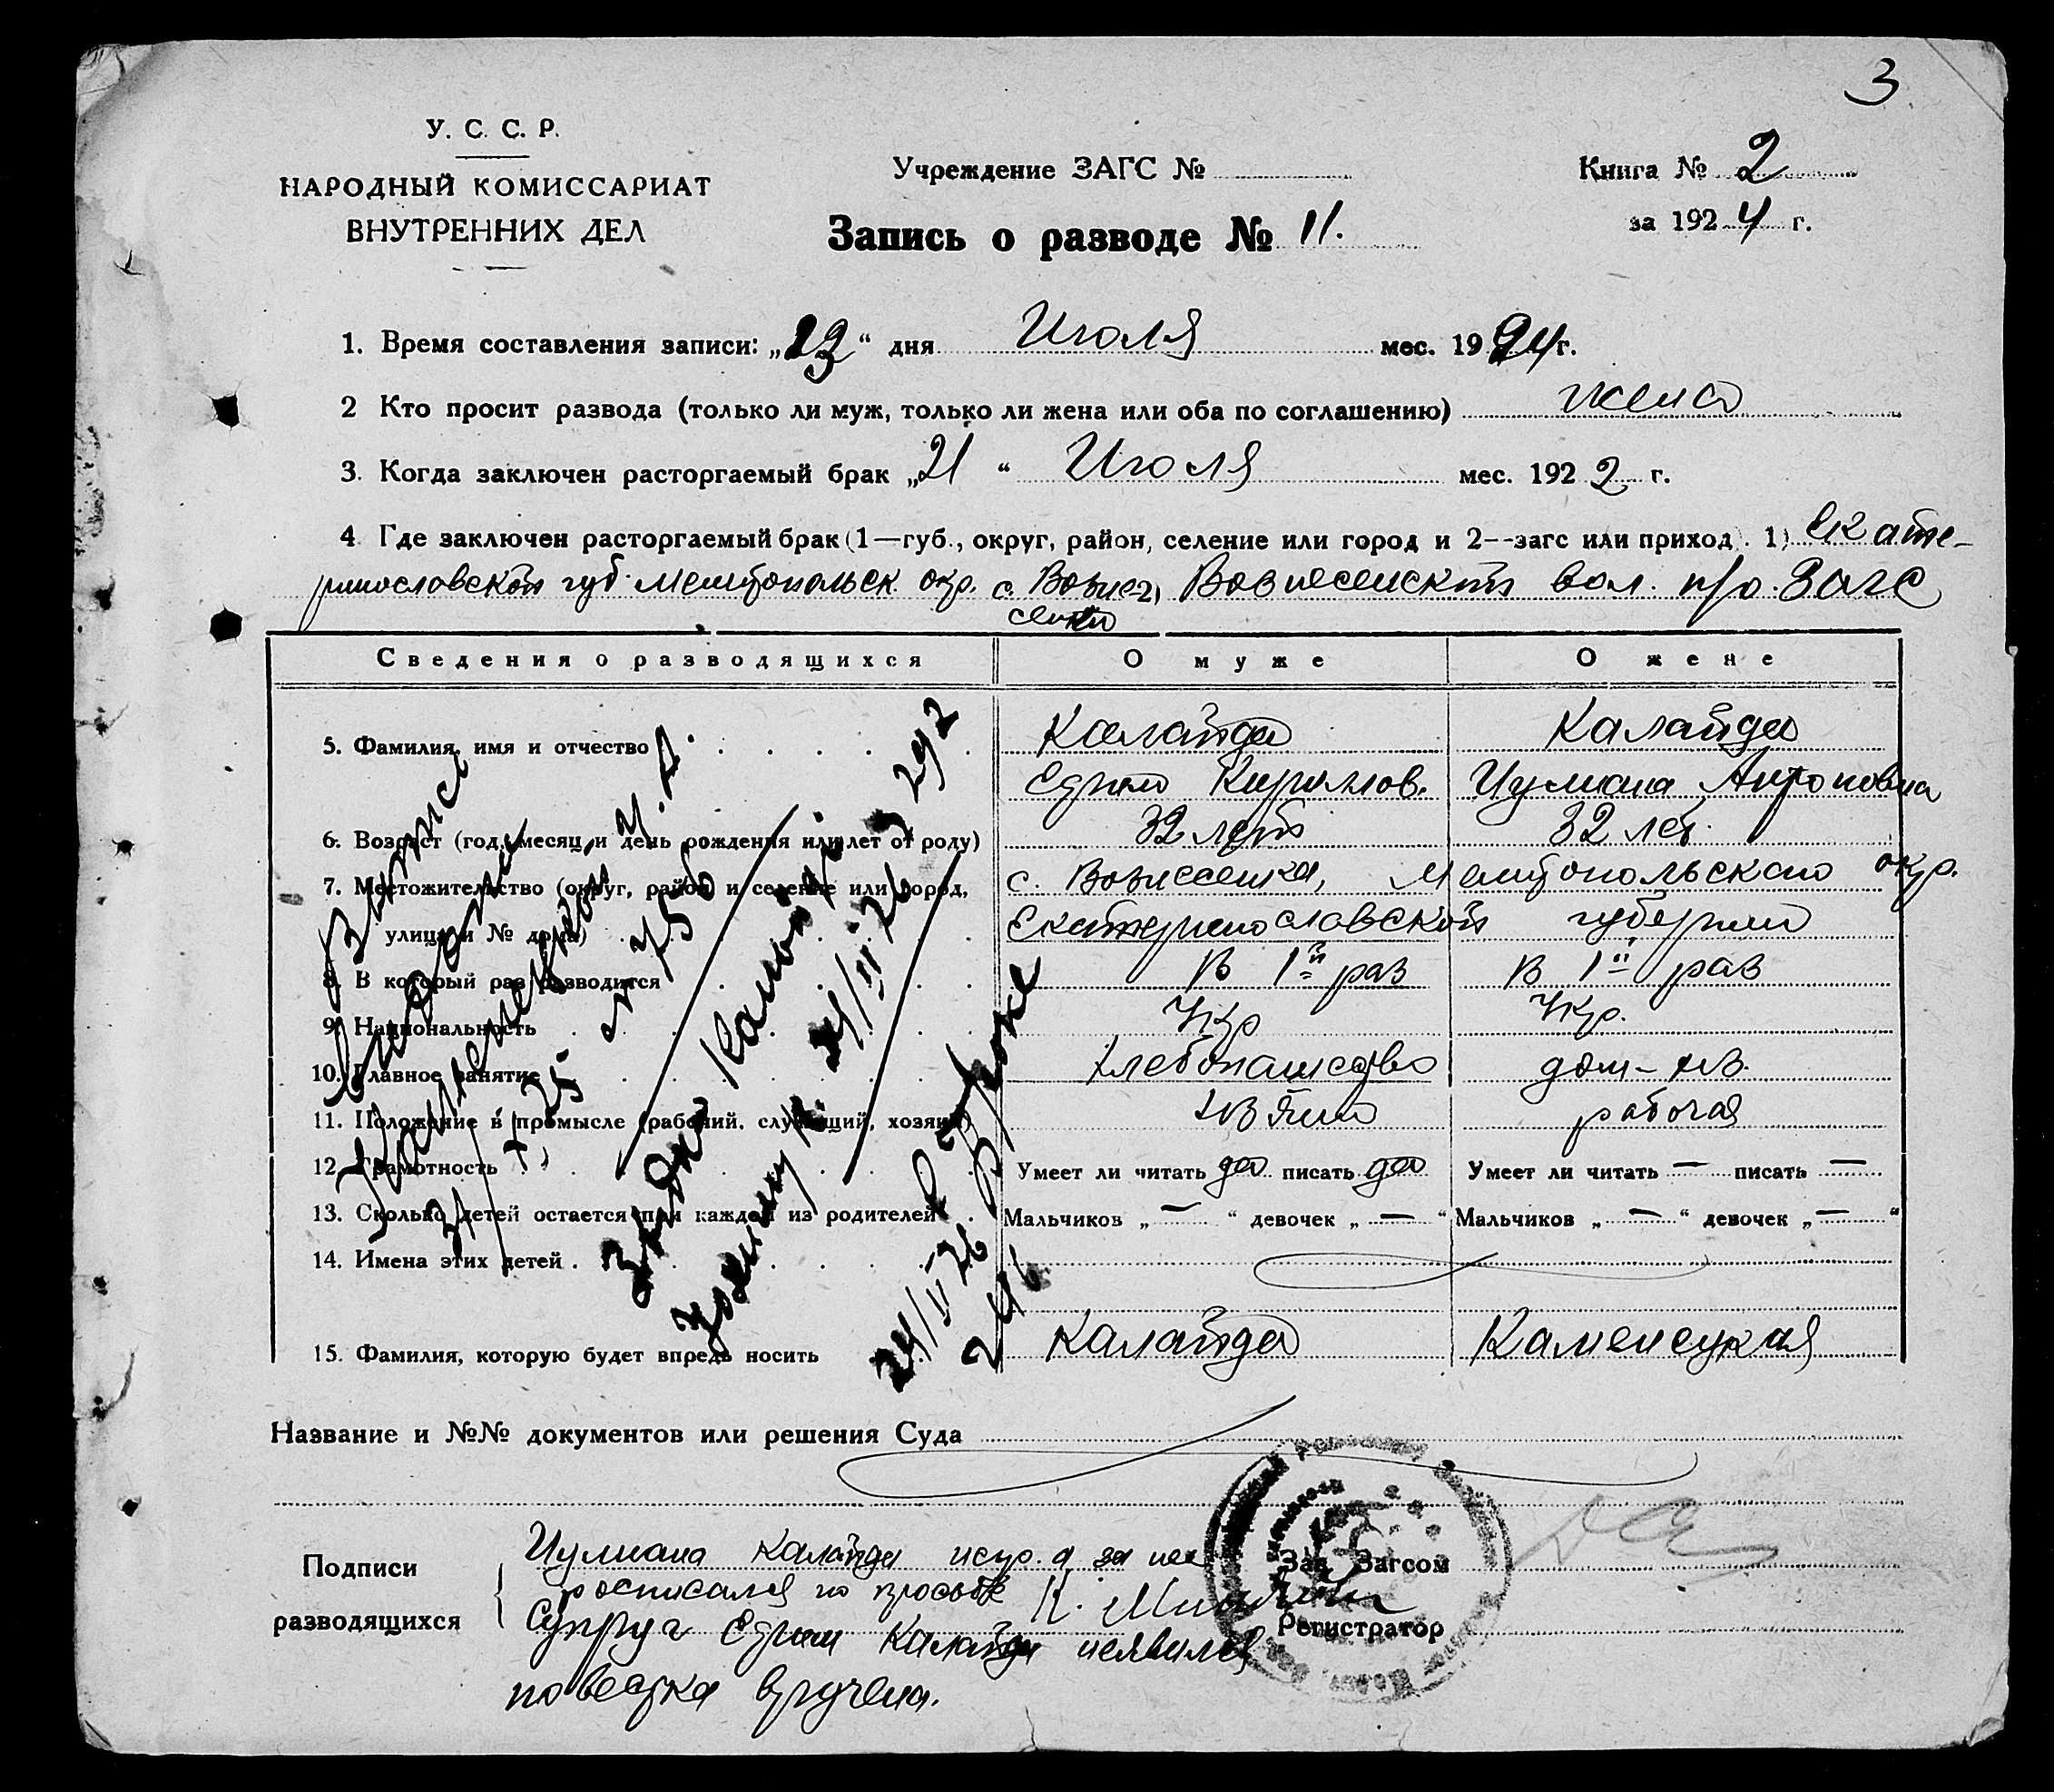 3
У. С. С. Р.
НАРОДНЫЙ КОМИССАРИАТ
ВНУТРЕННИХ ДЕЛ
Учреждение ЗАГС №
Запись о разводе № 11.
Книга № 2
за 1924 г.
1. Время составления записи: „23“ дня Июля мес. 1924 г.
2 Кто просит развода (только ли муж, только ли жена или оба по соглашению) жена
3. Когда заключен расторгаемый брак „21“ Июля мес. 1922 г.
4 Где заключен расторгаемый брак (1—губ., округ, район, селение или город и 2--загс или приход). 1) Екате-
ринославской губ. Мелитопольск. окр. с. Вознес- 2) Вознесенский вол. п/о. Загс
сенка
Сведения о разводящихся О муже О жене
5. Фамилия, имя и отчество Калайда Калайда
Ефим Кирилов. Иулиана Антоновна
6. Возраст (год, месяц и день рождения или лет от роду) 32 лет 32 лет.
7. Местожительство (округ, район и селение или город, с. Вознесенка, Мелитопольского окр.
улица и № дома) Екатеринославской губернии
8. В который раз разводится В 1й раз В 1й раз
9. Национальность Укр Укр.
10. Главное занятие хлебопашество дом-хоз.
11. Положение в промысле (рабочий, служащий, хозяин) хозяин рабочая
12. Грамотность Умеет ли читать да писать да Умеет ли читать — писать —
13. Сколько детей остается при каждом из родителей Мальчиков „ — “ девочек „ — “ Мальчиков „ — “ девочек „ — “
14. Имена этих детей
15. Фамилия, которую будет впредь носить Калайда Каменецкая
Выпись
выдана
Каменецкой У. А.
31/X 25 № 756
Калайда
24/II 26 292
24/II 26
Название и №№ документов или решения Суда
Подписи
разводящихся
Иулиана Калайда негр. а за нее
росписался по просьбе К.
Супруг Ефим Калайда неявился
повестка вручена.
Зав. Загсом
Регистратор